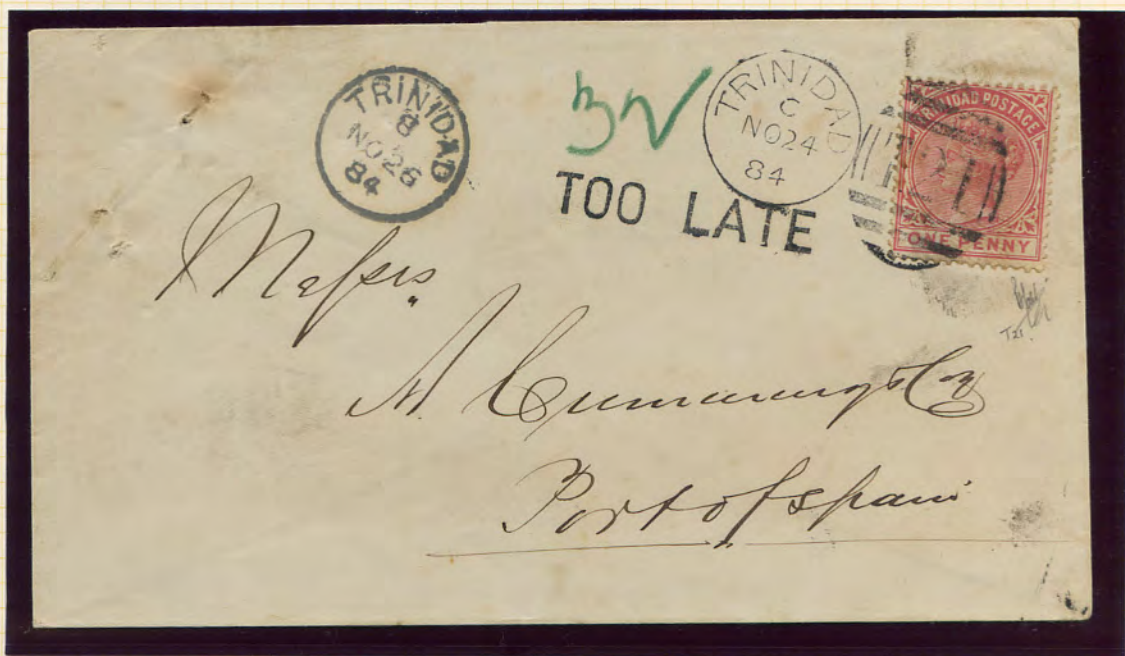 TRINIDAD
8
NO 26
84
32
TRINIDAD
C
NO 24
84
TOO LATE
TRINIDAD POSTAGE
ONE PENNY
Messrs
A. Cummings & Co
Port of Spain
T21